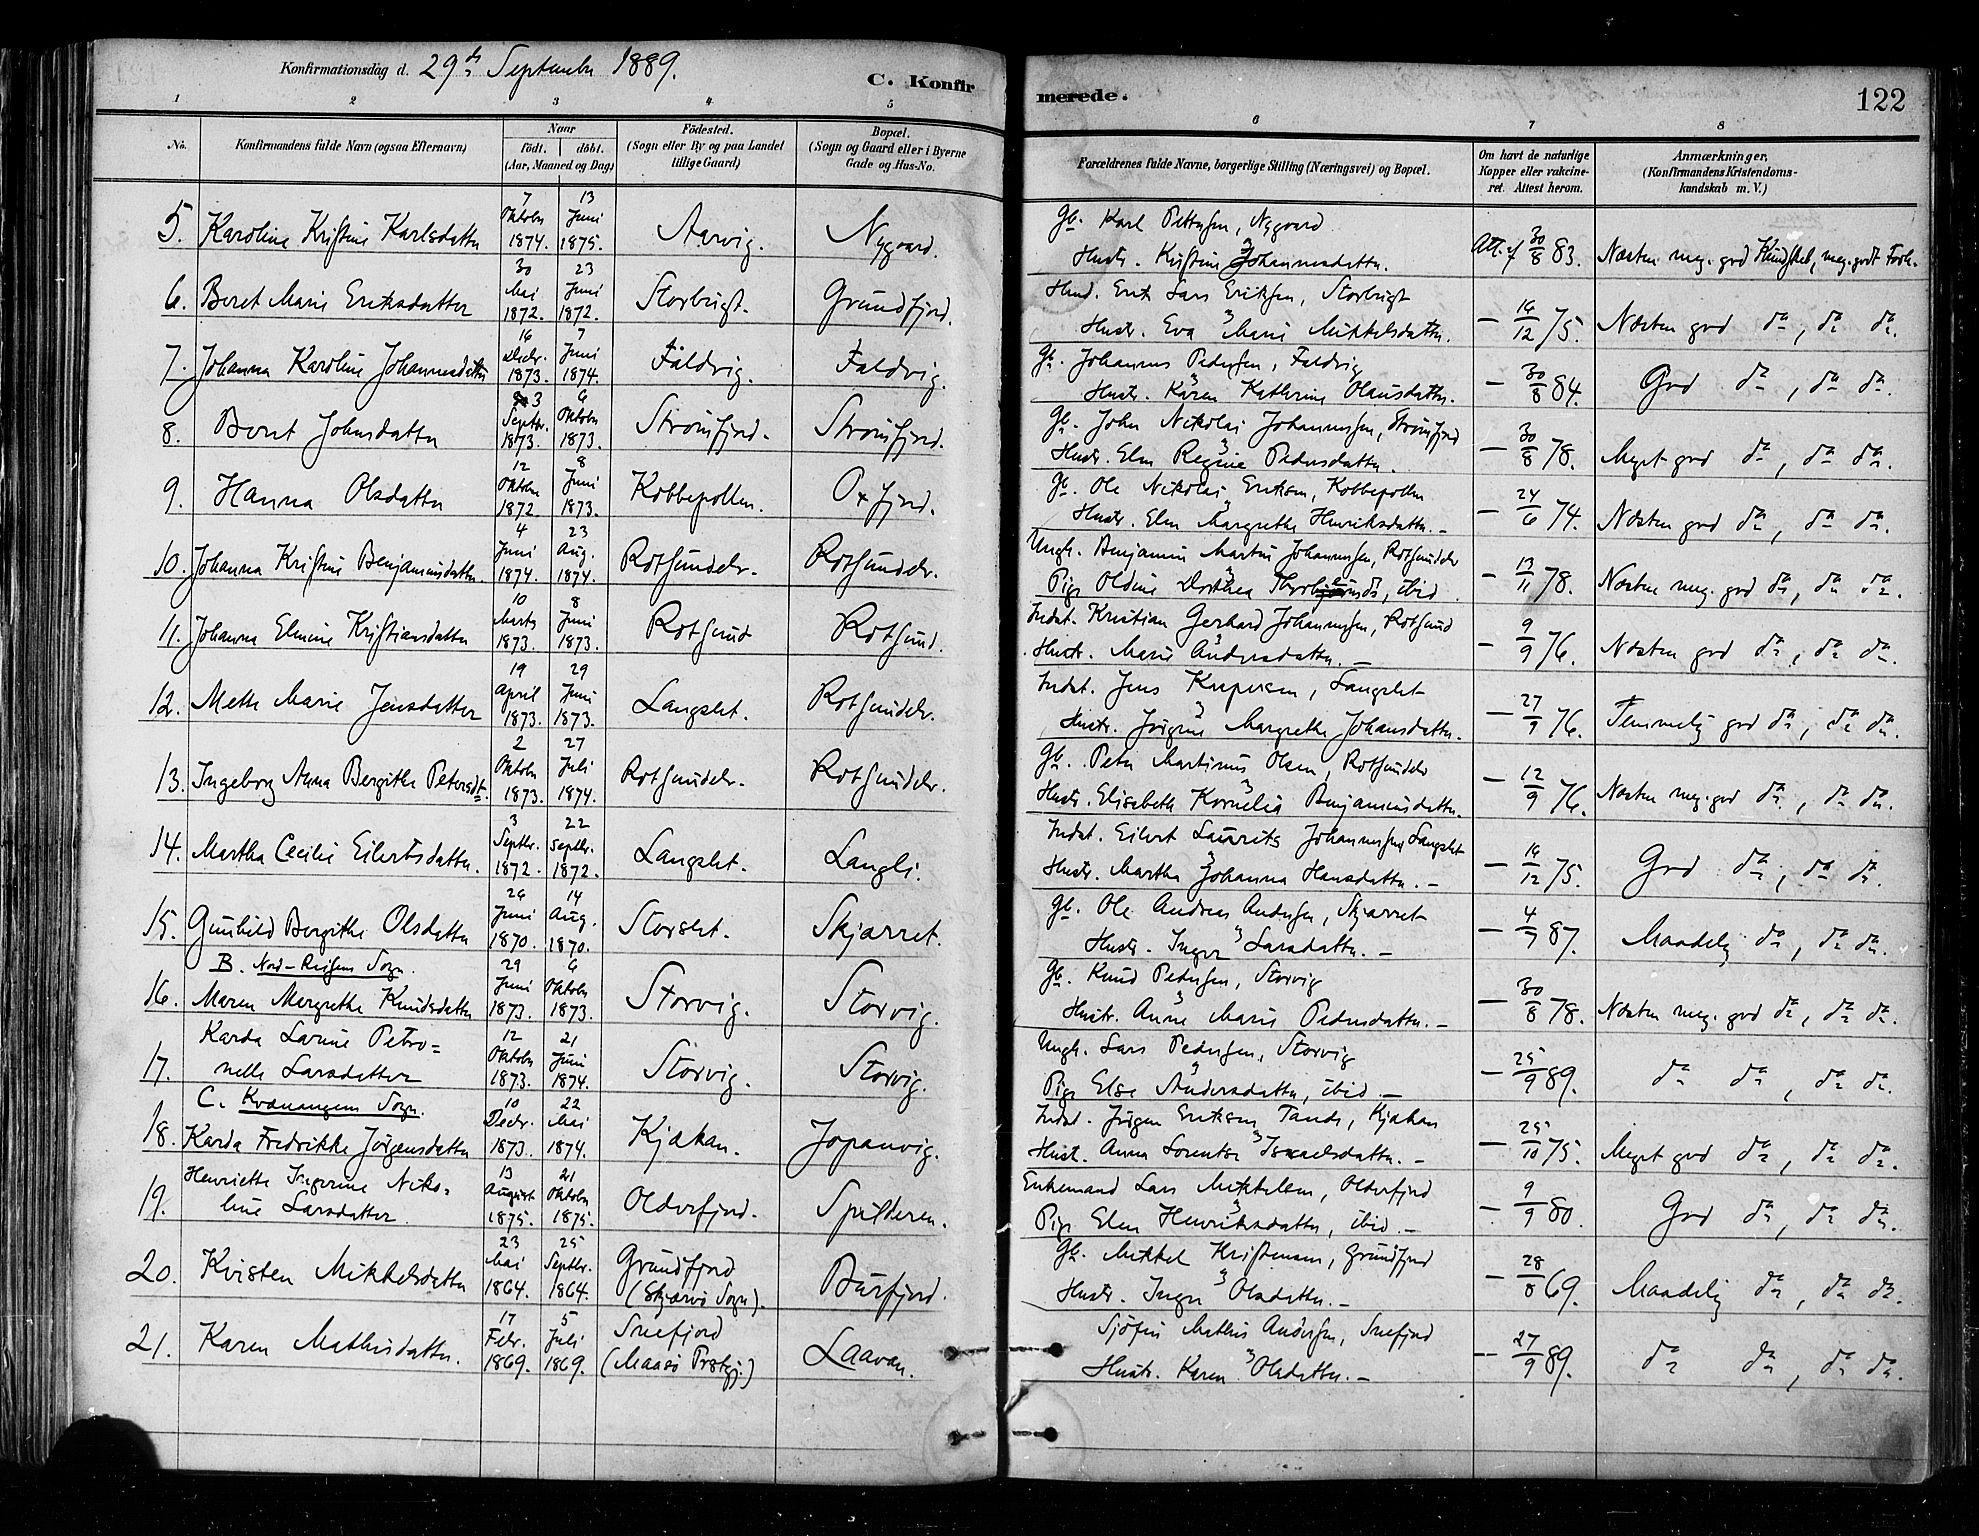 Konfirmationsdag d. 29de September 1889.
C. Konfirmerede.
122
1 2 3 4 5 6 7 8
No.
Konfirmandens fulde Navn (ogsaa Efternavn)
Naar
Födt. döbt.
(Aar, Maaned og Dag)
Födested.
(Sogn eller By og paa Landet
tillige Gaard)
Bopæl.
(Sogn og Gaard eller i Byerne
Gade og Hus-No.
Forældrenes fulde Navne, borgerlige Stilling (Næringsvei) og Bopæl.
Om havt de naturlige
Kopper eller vakcine-
ret. Attest herom.
Anmærkninger,
(Konfirmandens Kristendoms-
kundskab m. V.)
5. Karoline Kristine Karlsdatter 7 Oktober 1874. 13 Juni 1875. Aarvig. Nygaard.
Gb. Karl Pettersen, Nygaard
Hustr. Kristine Johannesdatter. Att. af 30/8 83. Næsten meg. god Kundskab, meg. godt Forh.
6. Beret Marie Eriksdatter 30 Mai 1872. 23 Juni 1872. Storbugt. Grundfjord.
Husd. Erik Lars Eriksen, Storbugt
Hustr. Eva Marie Mikkelsdatter. — 14/12 75. Næsten god do, do do.
7. Johanna Karoline Johannesdatter 16 Decbr. 1873. 7 Juni 1874. Faldvig. Faldvig.
Gb. Johannes Pedersen, Faldvig
Hustr. Karen Kathrine Olausdatter. — 30/8 84. God do, do do.
8. Beret Johnsdatter 3 Septbr. 1873. 6 Oktober 1873. Strømfjord. Strømfjord.
Gb. John Nikolai Johannessen, Strømfjord
Hustr. Elen Regine Pedersdatter. — 30/8 78. Meget god do, do do.
9. Hanna Olsdatter 12 Oktober 1872 8 Juni 1873. Kobbepollen. Oxfjord.
Gb. Ole Nikolai Eriksen, Kobbepollen
Hustr. Elen Margrethe Henriksdatter. — — 24/6 74. Næsten god do, do do.
10. Johanna Kristine Benjaminsdatter. 4 Juni 1874. 23 Aug. 1874. Rotsundelv. Rotsundelv.
Ungk. Benjamin Martin Johannessen, Rotsundelv
Pige Oldine Dorthea, ibid. — 13/11 78. Næsten meg. god do, do do.
11. Johanna Elmine Kristiansdatter 10 Marts 1873. 8 Juni 1873. Rotsund Rotsund.
Indst. Kristian Gerhard Johannessen, Rotsund
Hustr. Marie Andersdatter. — — 9/9 76. Næsten god do, do do.
12. Mette Marie Jensdatter 19 April 1873. 29 Juni 1873. Langslet. Rotsundelv.
Indst. Jens Kaspersen, Langslet
Hustr. Jørgine Margrethe Johansdatter. — 27/9 76. Temmelig god do, do do.
13. Ingeborg Anna Bergithe Petersdt. 2 Oktober 1873. 27 Juli 1874. Rotsundelv. Rotsundelv.
Gb. Peter Martinus Olsen, Rotsundelv
Hustr. Elisabeth Kornelia Benjaminsdatter. — 12/9 76. Næsten meg. god do, do do.
14. Martha Cecilie Eilertsdatter. 3 Septbr. 1872. 22 Septbr. 1872. Langslet. Langli.
Indst. Eilert Laurits Johannessen, Langslet
Hustr. Martha Johanna Hansdatter. — — 14/12 75. God do, do do.
15. Gunhild Bergithe Olsdatter 26 Juni 1870. 14 Aug. 1870. Storslet. Skjærret.
Gb. Ole Andreas Andersen, Skjærret
Hustr. Inger Larsdatter. — — 4/7 87. Maadelig do, do do.
B. Nord-Reisens Sogn.
16. Maren Margrethe Knudsdatter 29 Juni 1873. 6 Oktober 1873. Storvig. Storvig.
Gb. Knud Pedersen, Storvig
Hustr. Anne Marie Pedersdatter. — — 30/8 78. Næsten meg. god do, do do.
17. Karda Larine Petro=
nelle Larsdatter 12 Oktober 1873. 21 Juni 1874. Storvig. Storvig.
Ungk. Lars Pedersen, Storvig
Pige Else Andersdatter, ibid. — — 25/9 89. do do, do do.
C. Kvænangens Sogn.
18. Karda Fredrikke Jørgensdatter 10 Decbr. 1873. 22 Mai 1874. Kjækan. Jopanvig.
Indst. Jørgen Eriksen Tande, Kjækan
Hustr. Anna Lorentse Israelsdatter. — — 25/10 75. Meget god do, do do.
19. Henriette Ingerine Niko=
line Larsdatter. 13 August 1875. 21 Oktober 1875. Olderfjord. Spilderen.
Enkemand Lars Mikkelsen, Olderfjord
Pige Elen Henriksdatter, ibid. — — 9/9 80. God do, do do.
20. Kristen Mikkelsdatter 23 Mai 1864. 25 Septbr. 1864. Grundfjord
(Skjærvø Sogn). Burfjord.
Gb. Mikkel Kristensen, Grundfjord
Hustr. Inger Olsdatter. — — 28/8 69. Maadelig do, do do.
21. Karen Mathisdatter. 17 Febr. 1869. 5 Juli 1869. Snefjord
(Maasø Prstgj.) Laavan.
Sjøfin Mathis Andersen, Snefjord
Hustr. Karen Olsdatter. — — 27/9 89. do do, do do.